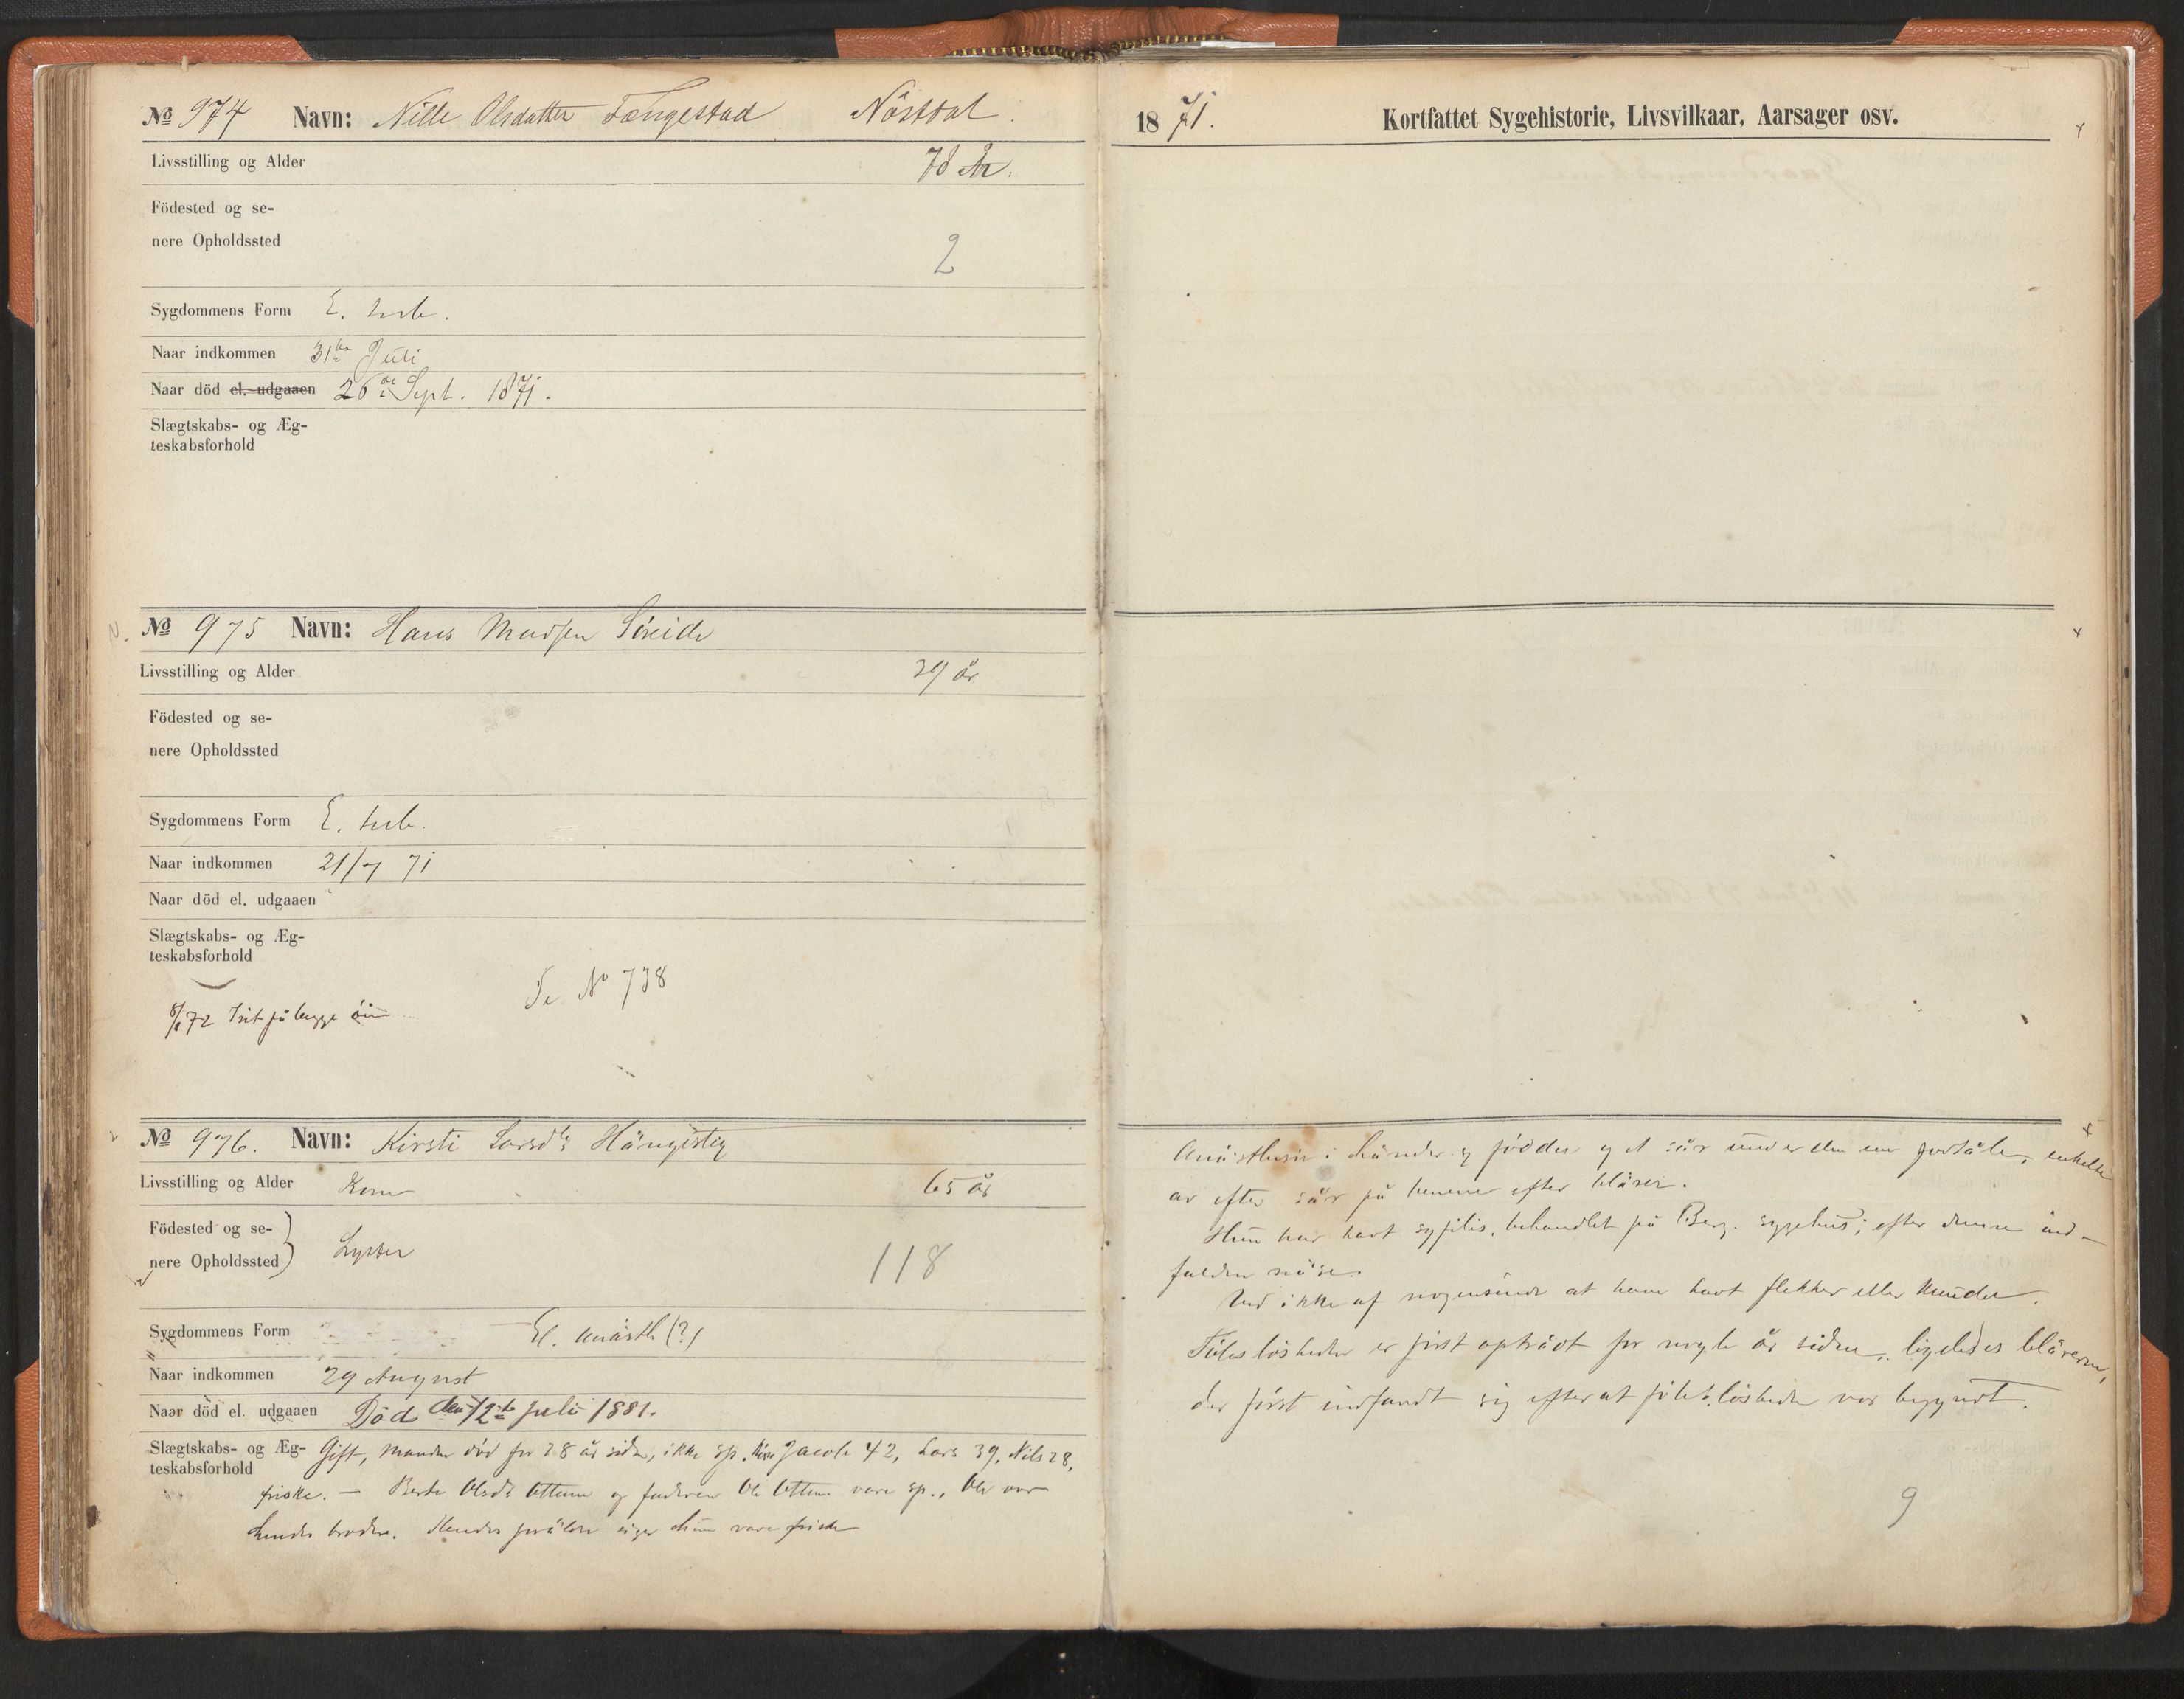 № 974 Navn: Nille Olsdatter Tængestad Nästdal.
Livsstilling og Alder 78 År.
Födested og se-
nere Opholdssted 2
Sygdommens Form E. tub.
Naar indkommen 31te Juli
Naar död el. udgaaen 26de Sept. 1871.
Slægtskabs- og Æg-
teskabsforhold
№ 975 Navn: Hans Madsen Söreide
Livsstilling og Alder 29 år
Födested og se-
nere Opholdssted
Sygdommens Form E. tub.
Naar indkommen 21/7 71
Naar död el. udgaaen
Slægtskabs- og Æg-
teskabsforhold
Se No 738
72 Irit på begge öine
№ 976. Navn: Kirsti Larsdtr
Livsstilling og Alder Kone 65 år
Födested og se-
nere Opholdssted Lyster 118
Sygdommens Form El. anästh (?)
Naar indkommen 29 August
Naar död el. udgaaen Död den 12te Juli 1881.
Slægtskabs- og Æg-
teskabsforhold Gift, manden död for 28 år siden, ikke sp. Jacob 42, Lars 39, Nils 28,
friske. — Berte Olsdtr og faderen Ole vare sp., Ole var
hendes broder. Hendes forældre siger hun vare friske
1871. Kortfattet Sygehistorie, Livsvilkaar, Aarsager osv.
Anästhesie i händer og födder og et sår under den ene fodsåle, enkelte
ar efter sår på benene efter blärer.
Hun har havt syfilis, behandlet på Berg. sygehus; efter denne ind-
falden näse.
Ved ikke af nogensinde at have havt flekker eller knuder.
Fölelseslösheden er först opträdt for nogle år siden, ligeledes blärerne,
der först indfandt sig efterat fölelseslösheden var begyndt.
9